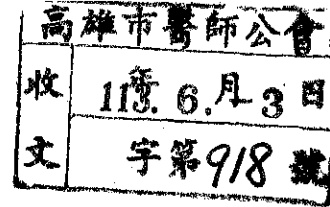 高雄市醫師公會
收文
113.6.月3日
字第918號